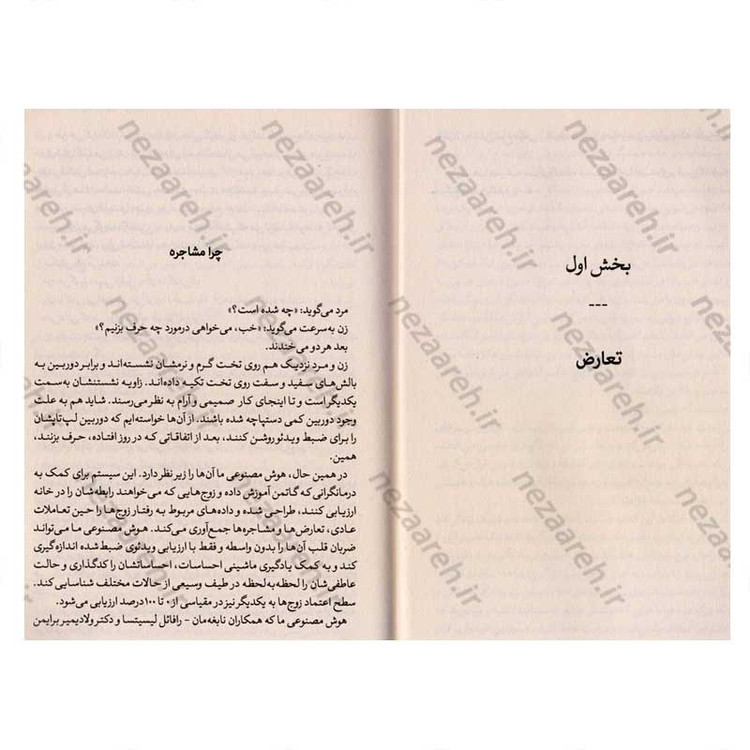 بخش اول
---
تعارض
چرا مشاجره
مرد می‌گوید: «چه شده است؟»
زن به‌سرعت می‌گوید: «خب، می‌خواهی درمورد چه حرف بزنیم؟»
بعد هر دو می‌خندند.
زن و مرد نزدیک هم روی تخت گرم و نرمشان نشسته‌اند و برابر دوربین به
بالش‌های سفید و سفت روی تخت تکیه داده‌اند. زاویه نشستنشان به‌سمت
یکدیگر است و تا اینجای کار صمیمی و آرام به نظر می‌رسند. شاید هم به علت
وجود دوربین کمی دستپاچه شده باشند. از آن‌ها خواسته‌ایم که دوربین لپ‌تاپشان
را برای ضبط ویدئو روشن کنند، بعد از اتفاقاتی که در روز افتاده، حرف بزنند،
همین.
در همین حال، هوش مصنوعی ما آن‌ها را زیر نظر دارد. این سیستم برای کمک به
درمانگرانی که گاتمن آموزش داده و زوج‌هایی که می‌خواهند رابطه‌شان را در خانه
ارزیابی کنند، طراحی شده و داده‌های مربوط به رفتار زوج‌ها را حین تعاملات
عادی، تعارض‌ها و مشاجره‌ها جمع‌آوری می‌کند. هوش مصنوعی ما می‌تواند
ضربان قلب آن‌ها را بدون واسطه و فقط با ارزیابی ویدئوی ضبط‌شده اندازه‌گیری
کند و به کمک یادگیری ماشینی احساسات، احساساتشان را کدگذاری و حالت
عاطفی‌شان را لحظه‌به‌لحظه در طیف وسیعی از حالات مختلف شناسایی کند.
سطح اعتماد زوج‌ها به یکدیگر نیز در مقیاسی از ۰ تا ۱۰۰ درصد ارزیابی می‌شود.
هوش مصنوعی ما که همکاران نابغه‌مان - رافائل لیسیتسا و دکتر ولادیمیر برایمن
nezaareh.ir
nezaareh.ir
nezaareh.ir
nezaareh.ir
nezaareh.ir
nezaareh.ir
nezaareh.ir
nezaareh.ir